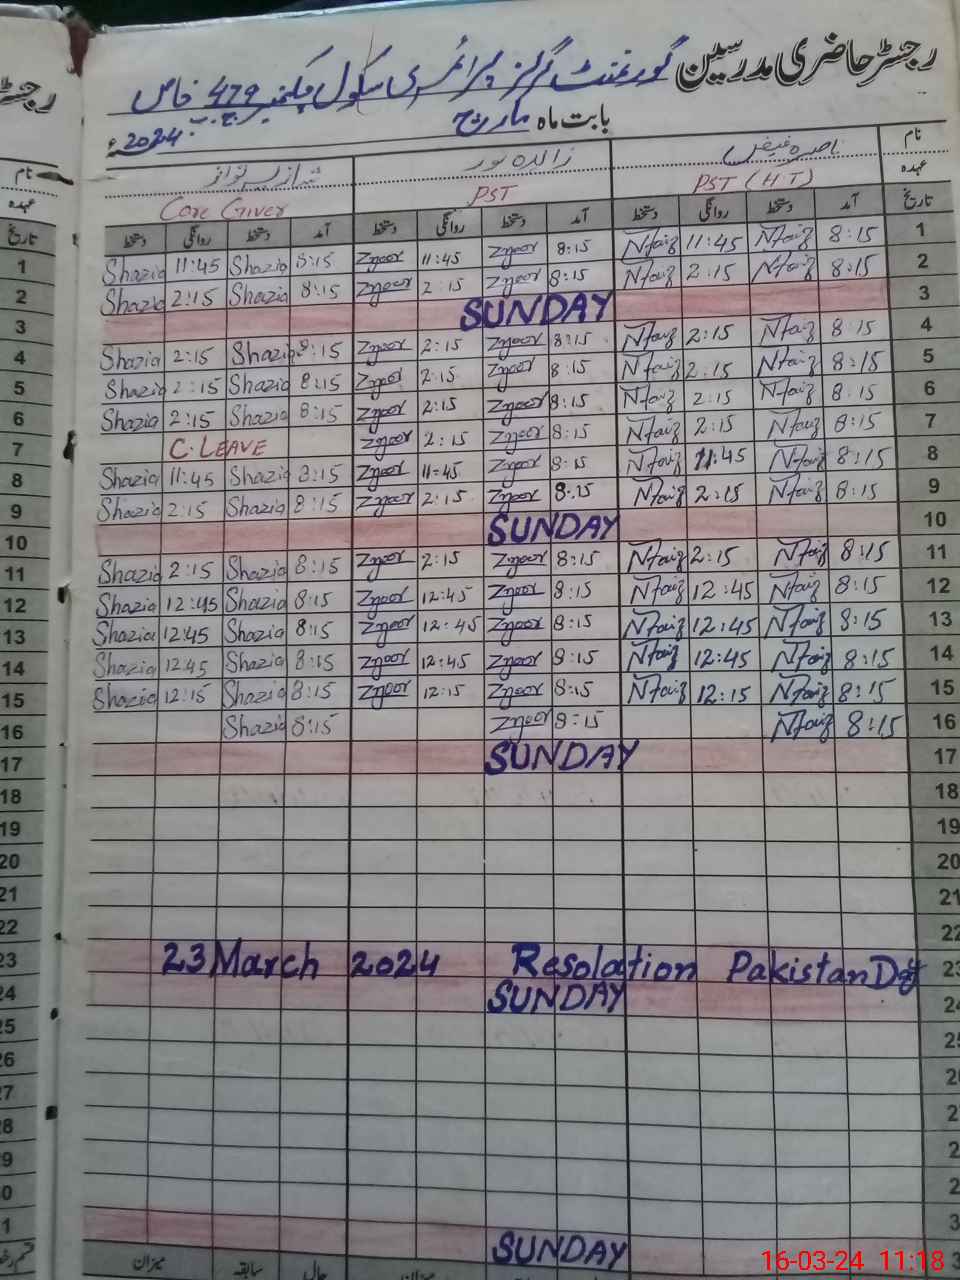 رجسٹر حاضری مدرسین گورنمنٹ گرلز پرائمری سکول چکنمبر 479 ج۔ب خاص
بابت ماہ مارچ 2024ء
نام ناصرہ فیض زاہدہ نور شازیہ نواز نام
عہدہ PST (H.T) PST Care Giver عہدہ
تاریخ آمد دستخط روانگی دستخط آمد دستخط روانگی دستخط آمد دستخط روانگی دستخط تاریخ
1 Shazia 11:45 Shazia 8:15 Znoor 11:45 Znoor 8:15 Nfaiz 11:45 Nfaiz 8:15 1
2 Shazia 2:15 Shazia 8:15 Znoor 2:15 Znoor 8:15 Nfaiz 2:15 Nfaiz 8:15 2
3 SUNDAY 3
4 Shazia 2:15 Shazia 8:15 Znoor 2:15 Znoor 8:15 Nfaiz 2:15 Nfaiz 8:15 4
5 Shazia 2:15 Shazia 8:15 Znoor 2:15 Znoor 8:15 Nfaiz 2:15 Nfaiz 8:15 5
6 Shazia 2:15 Shazia 8:15 Znoor 2:15 Znoor 8:15 Nfaiz 2:15 Nfaiz 8:15 6
7 C. LEAVE Znoor 2:15 Znoor 8:15 Nfaiz 2:15 Nfaiz 8:15 7
8 Shazia 11:45 Shazia 8:15 Znoor 11:45 Znoor 8:15 Nfaiz 11:45 Nfaiz 8:15 8
9 Shazia 2:15 Shazia 8:15 Znoor 2:15 Znoor 8:15 Nfaiz 2:15 Nfaiz 8:15 9
10 SUNDAY 10
11 Shazia 2:15 Shazia 8:15 Znoor 2:15 Znoor 8:15 Nfaiz 2:15 Nfaiz 8:15 11
12 Shazia 12:45 Shazia 8:15 Znoor 12:45 Znoor 8:15 Nfaiz 12:45 Nfaiz 8:15 12
13 Shazia 12:45 Shazia 8:15 Znoor 12:45 Znoor 8:15 Nfaiz 12:45 Nfaiz 8:15 13
14 Shazia 12:45 Shazia 8:15 Znoor 12:45 Znoor 8:15 Nfaiz 12:45 Nfaiz 8:15 14
15 Shazia 12:15 Shazia 8:15 Znoor 12:15 Znoor 8:15 Nfaiz 12:15 Nfaiz 8:15 15
16 Shazia 8:15 Znoor 8:15 Nfaiz 8:15 16
17 SUNDAY 17
18 18
19 19
20 20
21 21
22 22
23 23 March 2024 Resolation Pakistan Day 23
24 SUNDAY 24
25 25
26 26
SUNDAY
میزان سابقہ حالی میزان
16-03-24 11:18